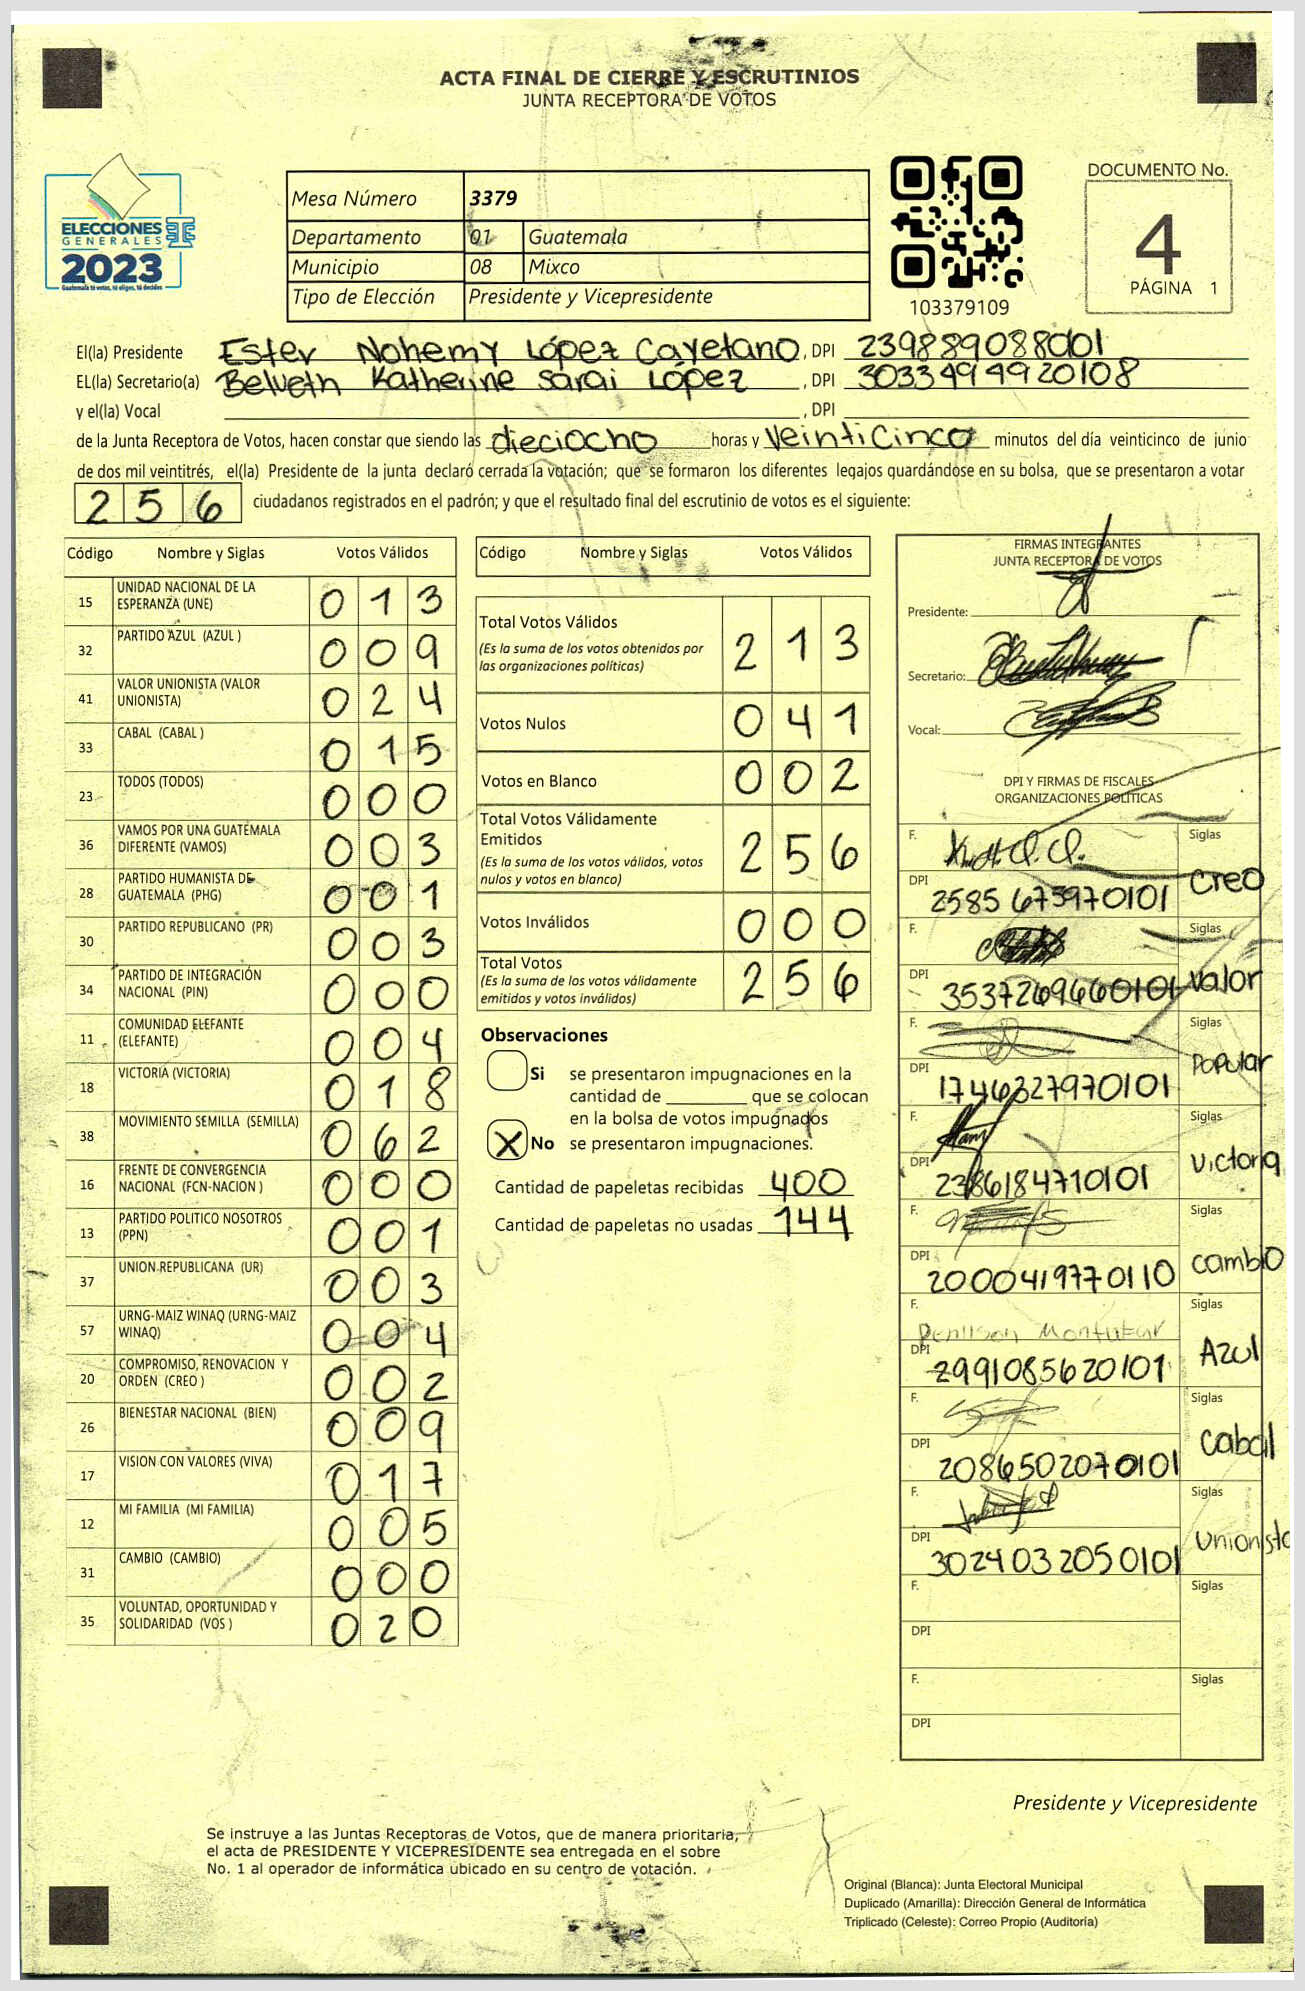 ACTA FINAL DE CIERRE Y ESCRUTINIOS
JUNTA RECEPTORA DE VOTOS
ELECCIONES
GENERALES
2023
Guatemala tú votas, tú eliges, tú decides
Mesa Número 3379
Departamento 01 Guatemala
Municipio 08 Mixco
Tipo de Elección Presidente y Vicepresidente
103379109
DOCUMENTO No.
4
PÁGINA 1
El(la) Presidente Ester Nohemy López Cayetano, DPI 2398890880101
EL(la) Secretario(a) Belveth Katherine Sarai López, DPI 3033494920108
y el(la) Vocal , DPI
de la Junta Receptora de Votos, hacen constar que siendo las dieciocho horas y veinticinco minutos del día veinticinco de junio
de dos mil veintitrés, el(la) Presidente de la junta declaró cerrada la votación; que se formaron los diferentes legajos guardándose en su bolsa, que se presentaron a votar
256 ciudadanos registrados en el padrón; y que el resultado final del escrutinio de votos es el siguiente:
Código Nombre y Siglas Votos Válidos
15 UNIDAD NACIONAL DE LA ESPERANZA (UNE) 013
32 PARTIDO AZUL (AZUL ) 009
41 VALOR UNIONISTA (VALOR UNIONISTA) 024
33 CABAL (CABAL ) 015
23 TODOS (TODOS) 000
36 VAMOS POR UNA GUATEMALA DIFERENTE (VAMOS) 003
28 PARTIDO HUMANISTA DE GUATEMALA (PHG) 001
30 PARTIDO REPUBLICANO (PR) 003
34 PARTIDO DE INTEGRACIÓN NACIONAL (PIN) 000
11 COMUNIDAD ELEFANTE (ELEFANTE) 004
18 VICTORIA (VICTORIA) 018
38 MOVIMIENTO SEMILLA (SEMILLA) 062
16 FRENTE DE CONVERGENCIA NACIONAL (FCN-NACION ) 000
13 PARTIDO POLITICO NOSOTROS (PPN) 001
37 UNION REPUBLICANA (UR) 003
57 URNG-MAIZ WINAQ (URNG-MAIZ WINAQ) 004
20 COMPROMISO, RENOVACION Y ORDEN (CREO ) 002
26 BIENESTAR NACIONAL (BIEN) 009
17 VISION CON VALORES (VIVA) 017
12 MI FAMILIA (MI FAMILIA) 005
31 CAMBIO (CAMBIO) 000
35 VOLUNTAD, OPORTUNIDAD Y SOLIDARIDAD (VOS ) 020
Código Nombre y Siglas Votos Válidos
Total Votos Válidos 213
(Es la suma de los votos obtenidos por
las organizaciones políticas)
Votos Nulos 041
Votos en Blanco 002
Total Votos Válidamente
Emitidos 256
(Es la suma de los votos válidos, votos
nulos y votos en blanco)
Votos Inválidos 000
Total Votos 256
(Es la suma de los votos válidamente
emitidos y votos inválidos)
Observaciones
Si se presentaron impugnaciones en la
cantidad de ________ que se colocan
en la bolsa de votos impugnados
X No se presentaron impugnaciones.
Cantidad de papeletas recibidas 400
Cantidad de papeletas no usadas 144
FIRMAS INTEGRANTES
JUNTA RECEPTORA DE VOTOS
Presidente:
Secretario:
Vocal:
DPI Y FIRMAS DE FISCALES
ORGANIZACIONES POLÍTICAS
F. Siglas
DPI 2585675970101 creo
F. Siglas
DPI 3537269660101 valor
F. Siglas
DPI 1746327970101 Popular
F. Siglas
DPI 2386184710101 victoria
F. Siglas
DPI 2000419770110 cambio
F. Siglas
DPI 2991085620101 Azul
F. Siglas
DPI 2086502070101 cabal
F. Siglas
DPI 3024032050101 unionista
F. Siglas
DPI
F. Siglas
DPI
Presidente y Vicepresidente
Se instruye a las Juntas Receptoras de Votos, que de manera prioritaria,
el acta de PRESIDENTE Y VICEPRESIDENTE sea entregada en el sobre
No. 1 al operador de informática ubicado en su centro de votación.
Original (Blanca): Junta Electoral Municipal
Duplicado (Amarilla): Dirección General de Informática
Triplicado (Celeste): Correo Propio (Auditoría)